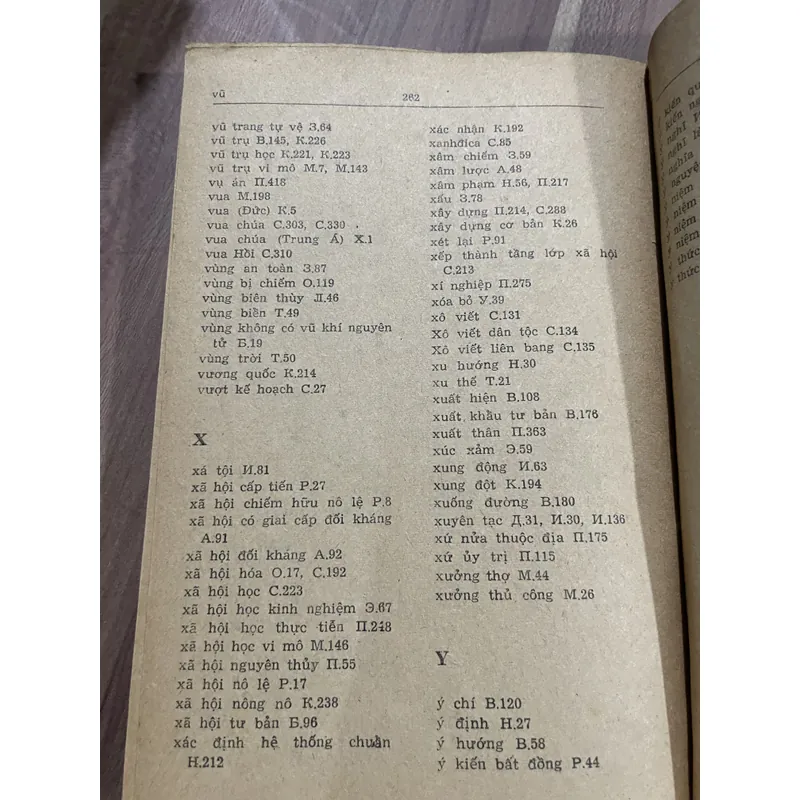 vũ
262
vũ trang tự vệ З.64
vũ trụ В.145, К.226
vũ trụ học К.221, К.223
vũ trụ vi mô М.7, М.143
vụ án П.418
vua М.198
vua (Đức) К.5
vua chúa С.303, С.330
vua chúa (Trung Á) Х.1
vua Hồi С.310
vùng an toàn З.87
vùng bị chiếm О.119
vùng biên thùy Л.46
vùng biển Т.49
vùng không có vũ khí nguyên
tử Б.19
vùng trời Т.50
vương quốc К.214
vượt kế hoạch С.27
X
xá tội И.81
xã hội cấp tiến Р.27
xã hội chiếm hữu nô lệ Р.8
xã hội có giai cấp đối kháng
А.91
xã hội đối kháng А.92
xã hội hóa О.17, С.192
xã hội học С.223
xã hội học kinh nghiệm Э.67
xã hội học thực tiễn П.248
xã hội học vi mô М.146
xã hội nguyên thủy П.55
xã hội nô lệ Р.17
xã hội nông nô К.238
xã hội tư bản Б.96
xác định hệ thống chuẩn
Н.212
xác nhận К.192
xanhđica С.85
xâm chiếm З.59
xâm lược А.48
xâm phạm Н.56, П.217
xấu З.78
xây dựng П.214, С.288
xây dựng cơ bản К.26
xét lại Р.91
xếp thành tầng lớp xã hội
С.213
xí nghiệp П.275
xóa bỏ У.39
xô viết С.131
Xô viết dân tộc С.134
Xô viết liên bang С,135
xu hướng Н.30
xu thế Т.21
xuất hiện В.108
xuất khẩu tư bản В.176
xuất thân П.363
xúc xảm Э.59
xung động И.63
xung đột К.194
xuống đường В.180
xuyên tạc Д.31, И.30, И.136
xứ nửa thuộc địa П.175
xứ ủy trị П.115
xưởng thợ М.44
xưởng thủ công М.26
Y
ý chí В.120
ý định Н.27
ý hướng В.58
ý kiến bất đồng Р.44
kiến
kiến
nghĩ
nghĩ
nghĩa
nguyện
ý niệm
ý niệm
ý niệm
ý niệm
ý thức
ý thức